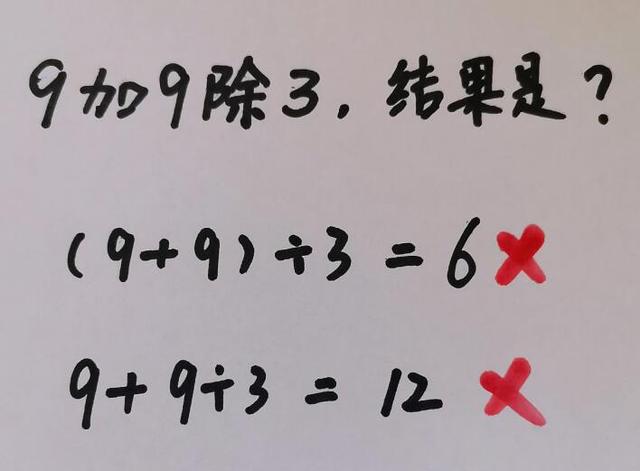 9加9除3，结果是？
(9+9)÷3=6 ×
9+9÷3=12 ×